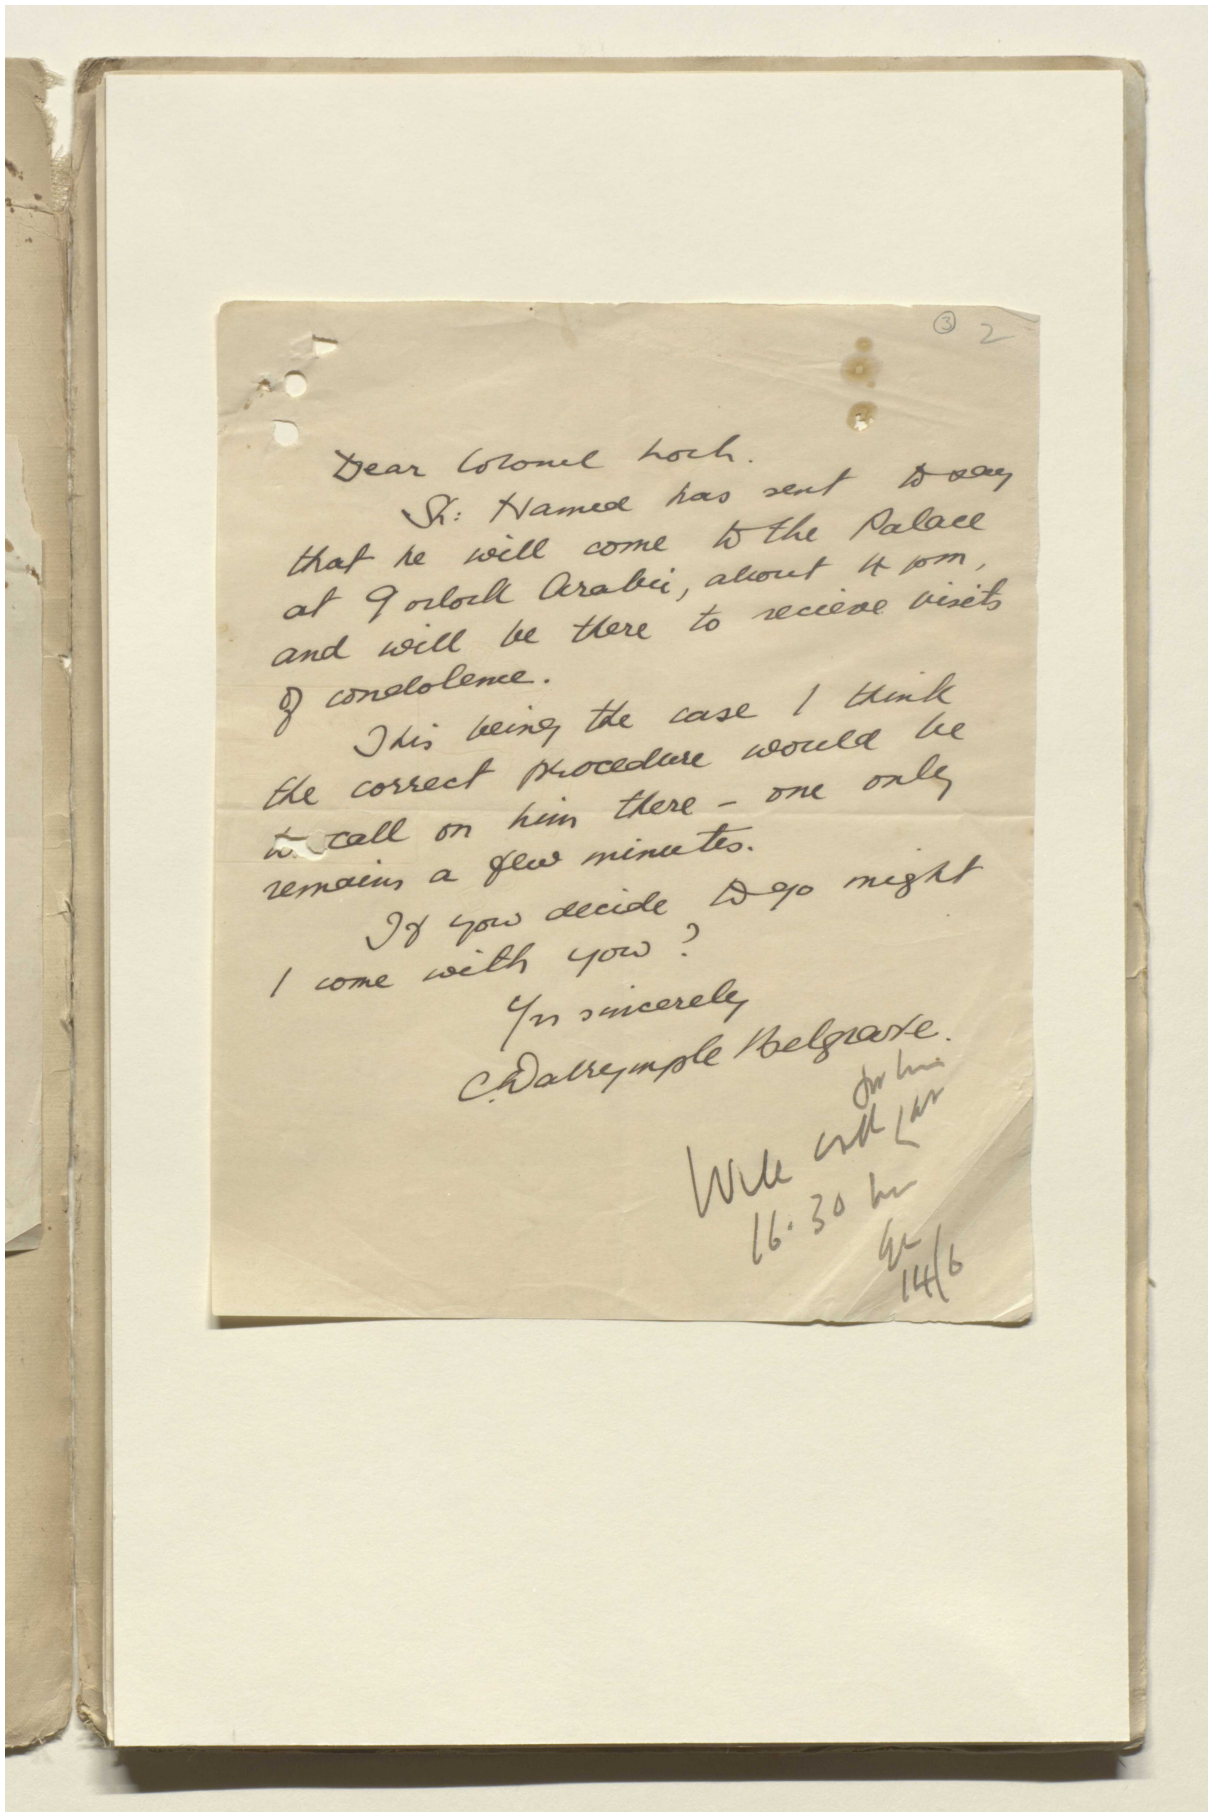 3 2
Dear Colonel Loch.
Sh: Hamed has sent to say
that he will come to the Palace
at 9 oclock Arabic, about 4 pm,
and will be there to recieve visits
of condolence.
This being the case I think
the correct procedure would be
to call on him there - one only
remains a few minutes.
If you decide to go might
I come with you?
Yrs sincerely
C. Dalrymple Belgrave.
Will call
16.30 hrs
14/6